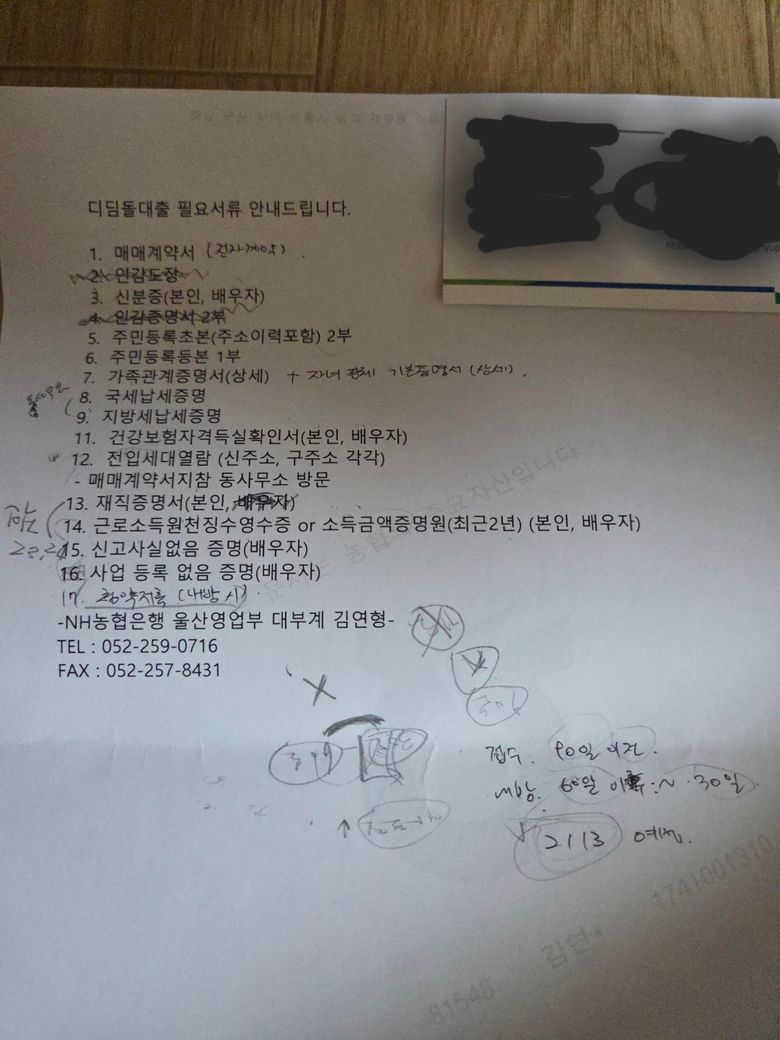 디딤돌대출 필요서류 안내드립니다.
1. 매매계약서 (전자계약).
2. 인감도장
3. 신분증(본인, 배우자)
4. 인감증명서 2부
5. 주민등록초본(주소이력포함) 2부
6. 주민등록등본 1부
7. 가족관계증명서(상세) + 자녀 전체 기본증명서 (상세).
8. 국세납세증명
9. 지방세납세증명
11. 건강보험자격득실확인서(본인, 배우자)
12. 전입세대열람 (신주소, 구주소 각각)
- 매매계약서지참 동사무소 방문
13. 재직증명서(본인, 배우자)
14. 근로소득원천징수영수증 or 소득금액증명원(최근2년) (본인, 배우자)
23, 24
15. 신고사실없음 증명(배우자)
16. 사업 등록 없음 증명(배우자)
17. 청약저축 (내방 시)
-NH농협은행 울산영업부 대부계 김연형-
TEL : 052-259-0716
FAX : 052-257-8431
접수. 90일 이전.
내방. 60일 ~ 30일
2113 예정.
중요자산입니다
농협
김연*
1741001310
81548